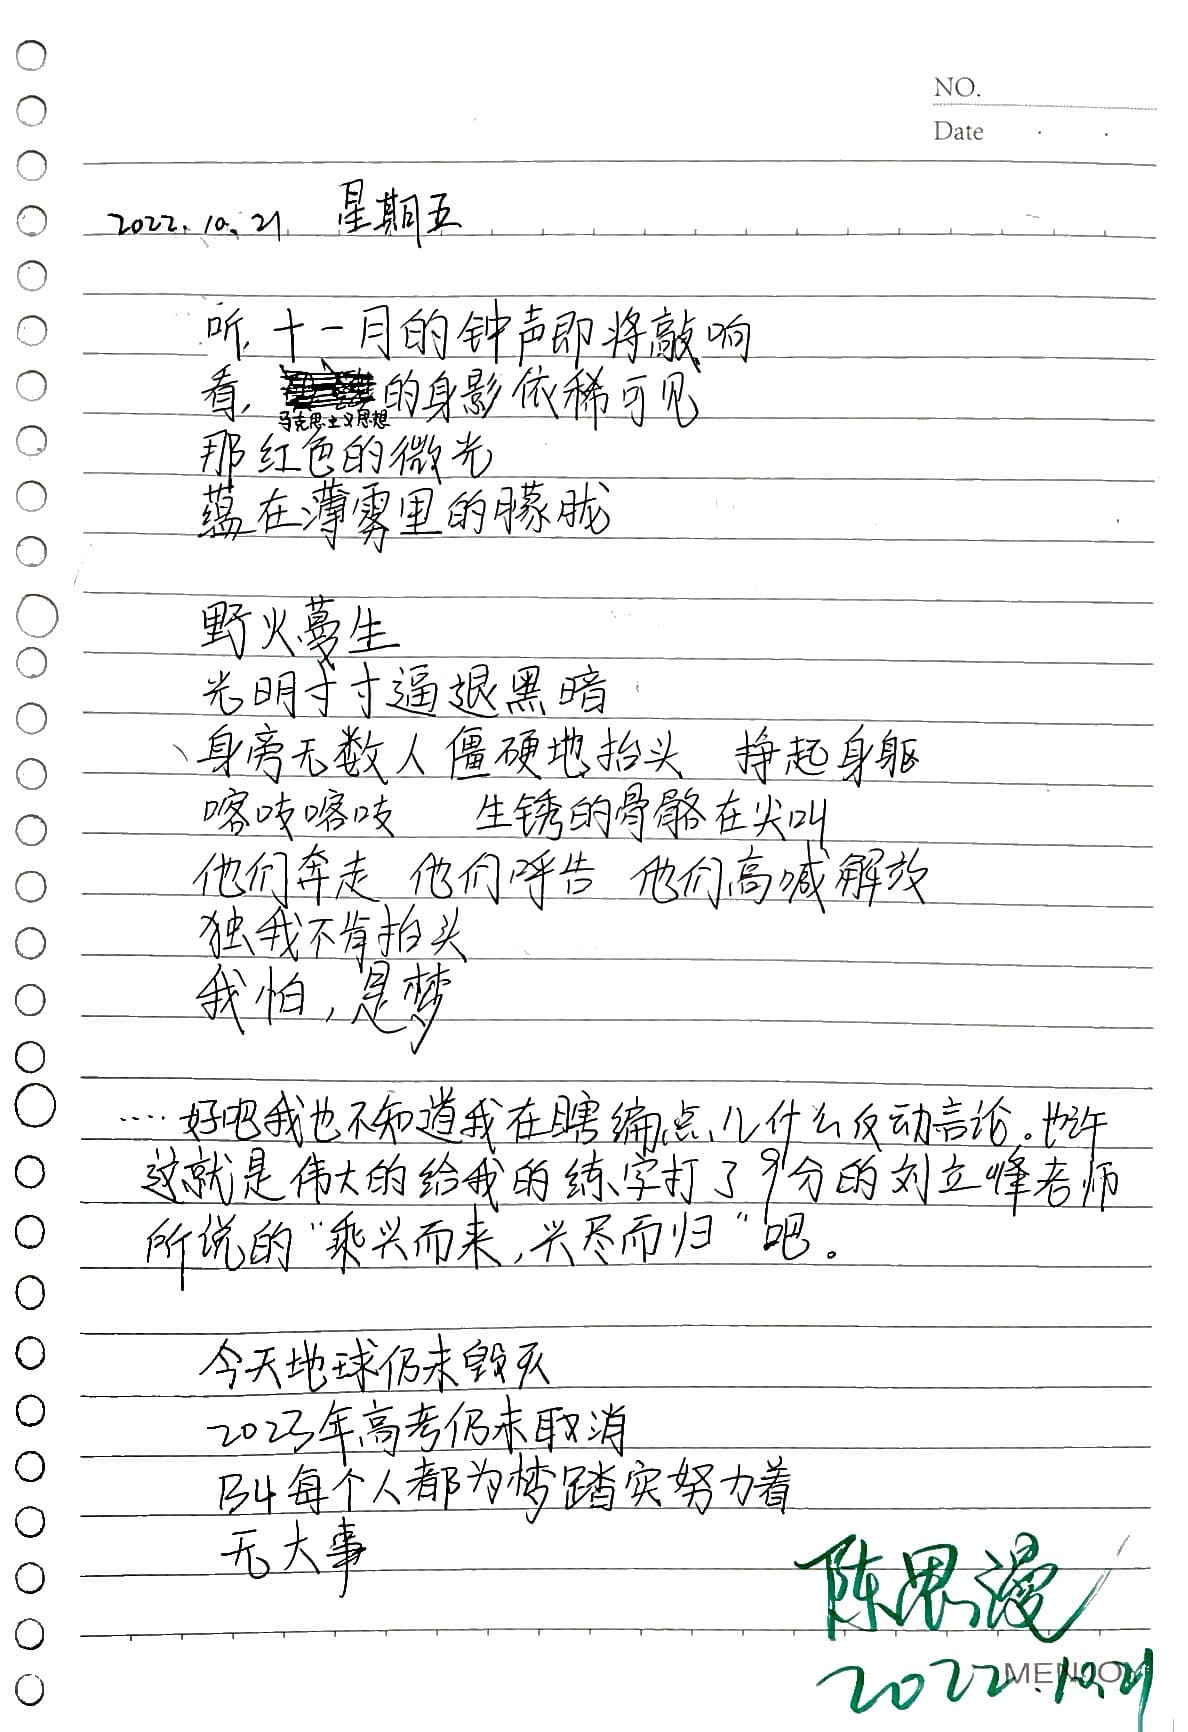 NO.
Date
2022.10.21 星期五
听,十一月的钟声即将敲响
看,的身影依稀可见
马克思主义思想
那红色的微光
蕴在薄雾里的朦胧
野火蔓生
光明寸寸逼退黑暗
身旁无数人僵硬地抬头 挣起身躯
喀吱喀吱 生锈的骨骼在尖叫
他们奔走 他们呼告 他们高喊解放
独我不肯抬头
我怕,是梦
....好吧我也不知道我在瞎编点儿什么反动言论。也许
这就是伟大的给我的练字打了9分的刘立峰老师
所说的“乘兴而来,兴尽而归”吧。
今天地球仍未毁灭
2023年高考仍未取消
B4每个人都为梦踏实努力着
无大事
陈思漫
2022.10.21